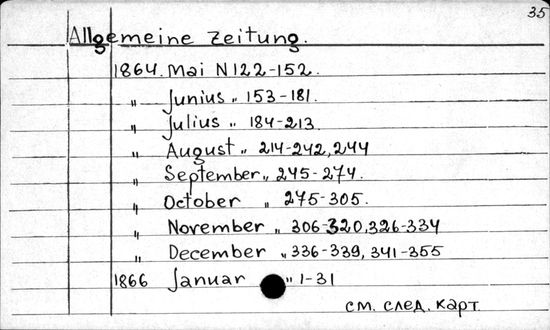 35
Allgemeine Zeitung.
1864. Mai N 122-152.
„ Junius „ 153-181.
„ Julius „ 184-213.
„ August „ 214-242, 244
„ September „ 245-274.
„ October „ 275-305.
„ November „ 306-320, 326-334
„ December „ 336-339, 341-355
1866 Januar „ 1-31
см. след. карт.